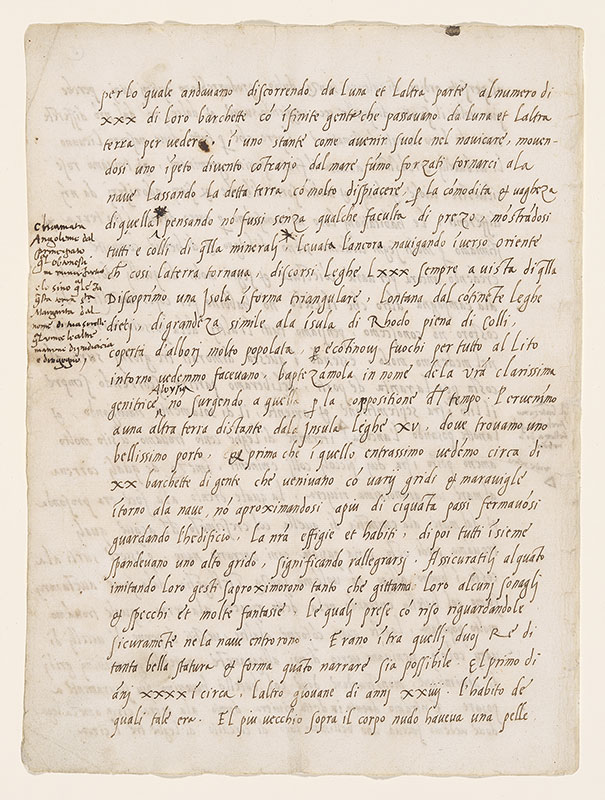 per lo quale andavano discorrendo da luna et laltra parte al numero di
xxx di loro barchette cõ ĩfinite gente che passavano da luna et laltra
terra per vederci, ĩ uno stante come avenir suole nel navicare, moven-
dosi uno ĩpeto divento cõtrario dal mare fũmo forzati tornarci ala
nave lassando la detta terra cõ molto dispiacere, ꝑ la cõmodita & vagheza
di quella pensando nõ fussi senza qualche faculta di prezo, mõstrãdosi
tutti e colli di q̃lla minerali, levata lancora navigando ĩverso oriente
ch̃ cosi la terra tornava, discorsi leghe Lxxx sempre a vista di q̃lla
Discoprimo una Isola ĩ forma triangulare, lontana dal cõtinẽte leghe
dieci, di grandeza simile ala isula di Rhodo piena di colli,
coperta d'albori molto popolata, ꝑ e cõtinovi fuochi per tutto al lito
intorno vedemmo facevano, baptezãmola in nome dela vr̃a clarissima
Aloysia
genitrice, nõ surgendo a quella ꝑ la oppositione d̃l tempo. Pervenimo
a una altra terra distante dala Insula leghe xv, dove trovamo uno
bellissimo porto, & prima che ĩ quello entrassimo vedẽmo circa di
xx barchette di gente che venivano cõ varij gridi & maraviglie
ĩtorno ala nave, nõ aproximandosi a piu di cĩquãta passi fermavõsi
guardando lhedificio, la nr̃a effigie et habiti, di poi tutti ĩsieme
spandevano uno alto grido, significando rallegrarsi. Assicuratili alquãto
imitando loro gesti saproximorono tanto che gittamo loro alcuni sonagli
& specchi et molte fantasie. le quali prese cõ riso riguardandole
sicuramẽte nela nave entrorono. Erano ĩtra quelli duoi Re di
tanta bella statura & forma quãto narrare sia possibile. El primo di
anj xxxx ĩ circa, laltro giovane di anni xxiiij. lhabito de
quali tale era. El piu vecchio sopra il corpo nudo haveva una pelle
chiamata
Angoleme dal
principato